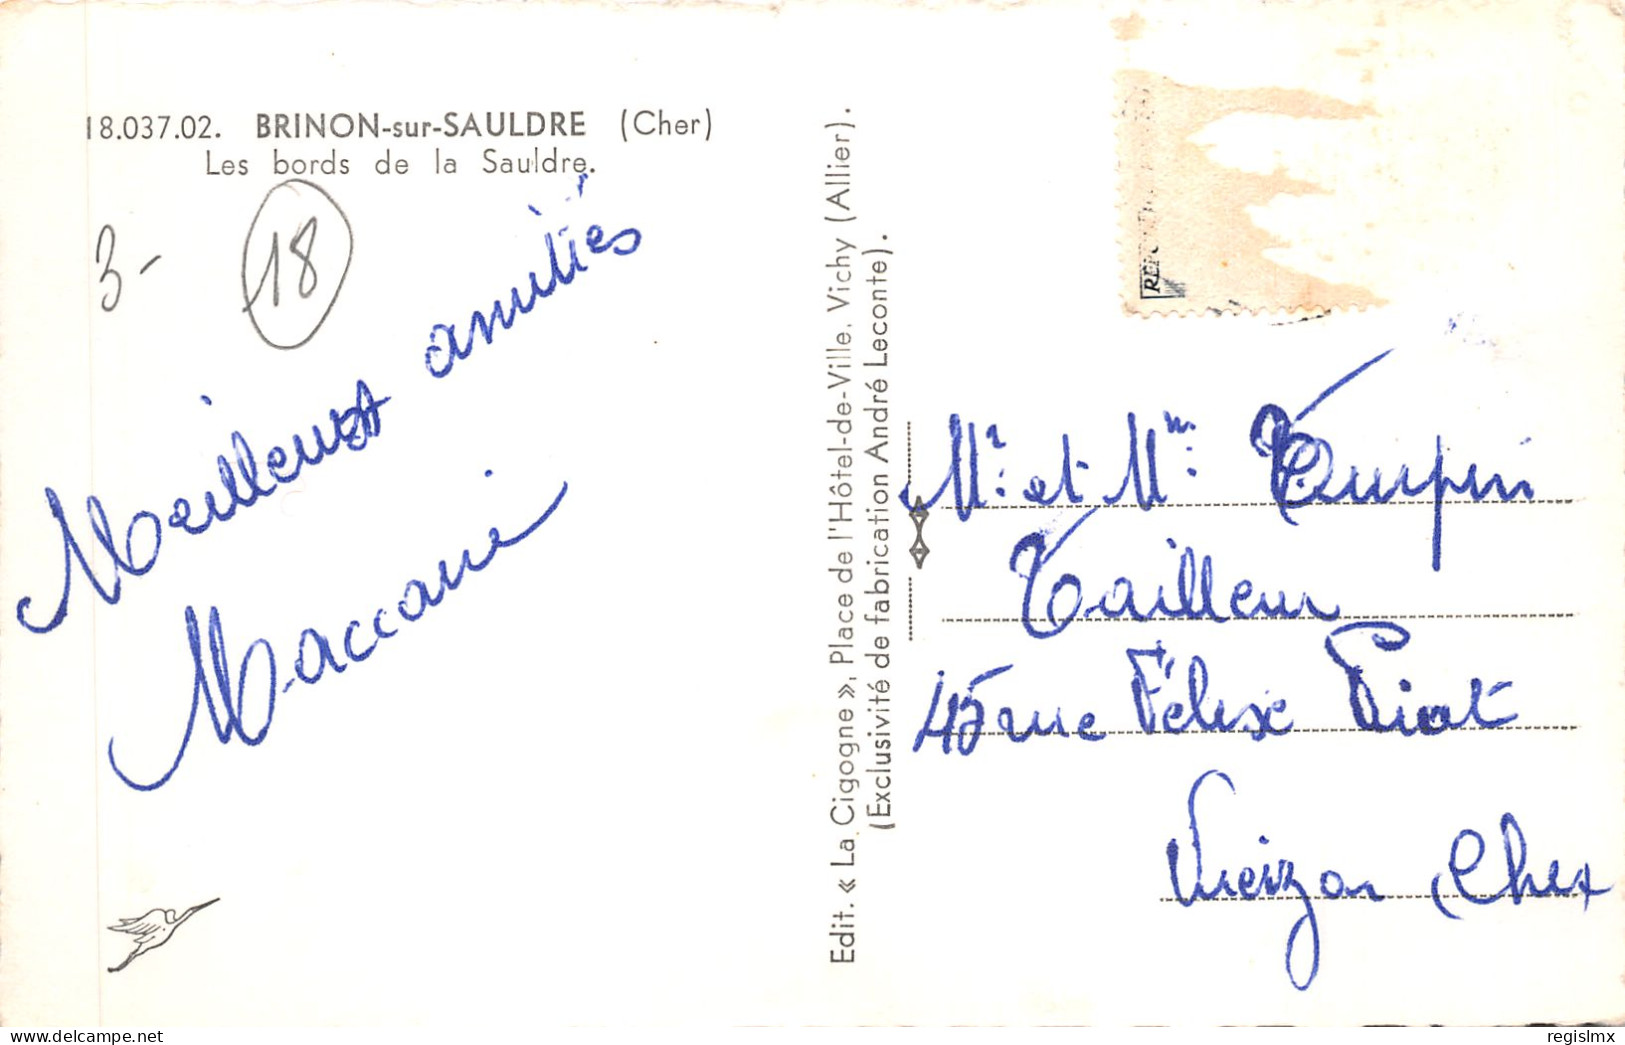 18.037.02. BRINON-sur-SAULDRE (Cher)
Les bords de la Sauldre.
3-
18
Meilleures amitiés
Maccarie
Edit. « La Cigogne », Place de l'Hôtel-de-Ville, Vichy (Allier).
(Exclusivité de fabrication André Leconte).
Mr. et Mm: Turpin
Tailleur
45 rue Félix Piat
Vierzon Cher
delcampe.net
regislmx